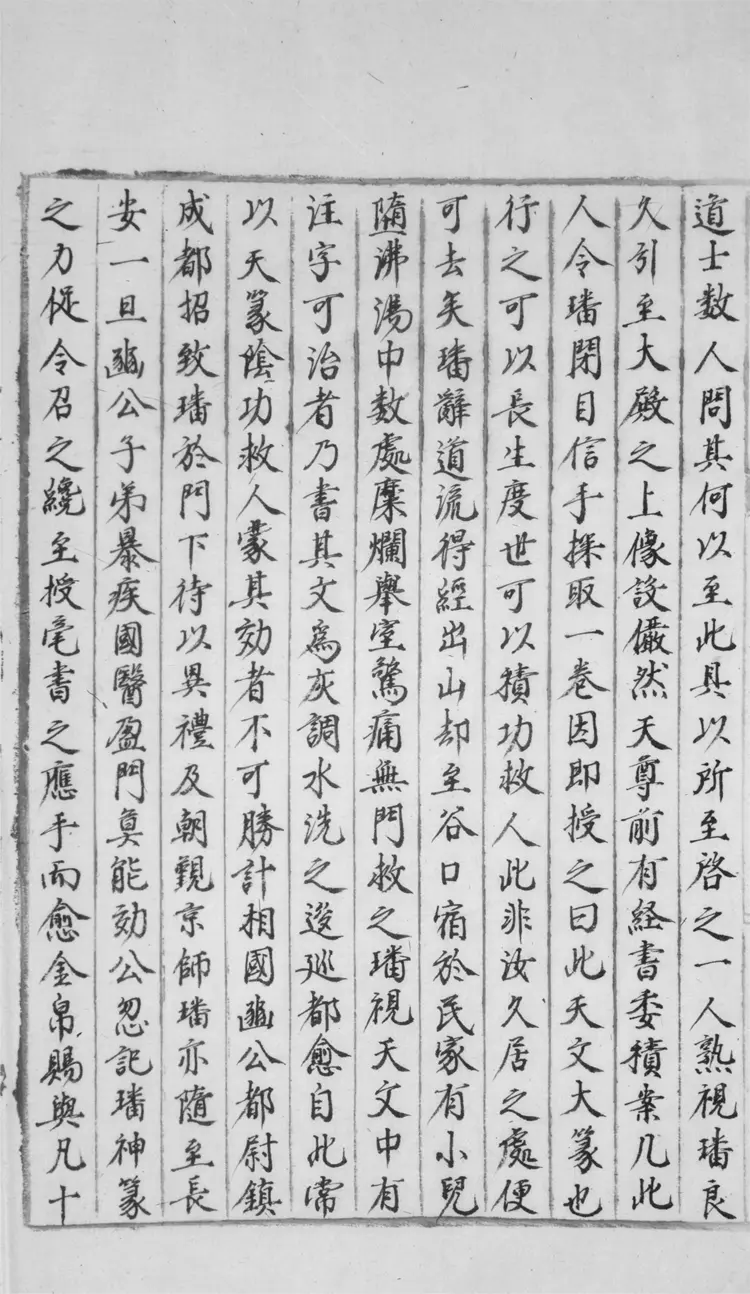 道士数人問其何以至此具以所至啓之一人熟視璠良
久引至大殿之上像設儼然天尊前有経書委積案几此
人令璠閉目信手探取一卷因即授之曰此天文大篆也
行之可以長生度世可以積功救人此非汝久居之處便
可去矣璠辭道流得經出山却至谷口宿於民家有小兒
墮沸湯中数處糜爛舉室驚痛無門救之璠視天文中有
注字可治者乃書其文為灰調水洗之逡巡都愈自此常
以天篆陰功救人蒙其効者不可勝計相國豳公都尉鎮
成都招致璠於門下待以異禮及朝覲京師璠亦随至長
安一旦豳公子弟暴疾國醫盈門莫能効公忽記璠神篆
之力促令召之纔至授毫書之應手而愈金帛賜與凡十